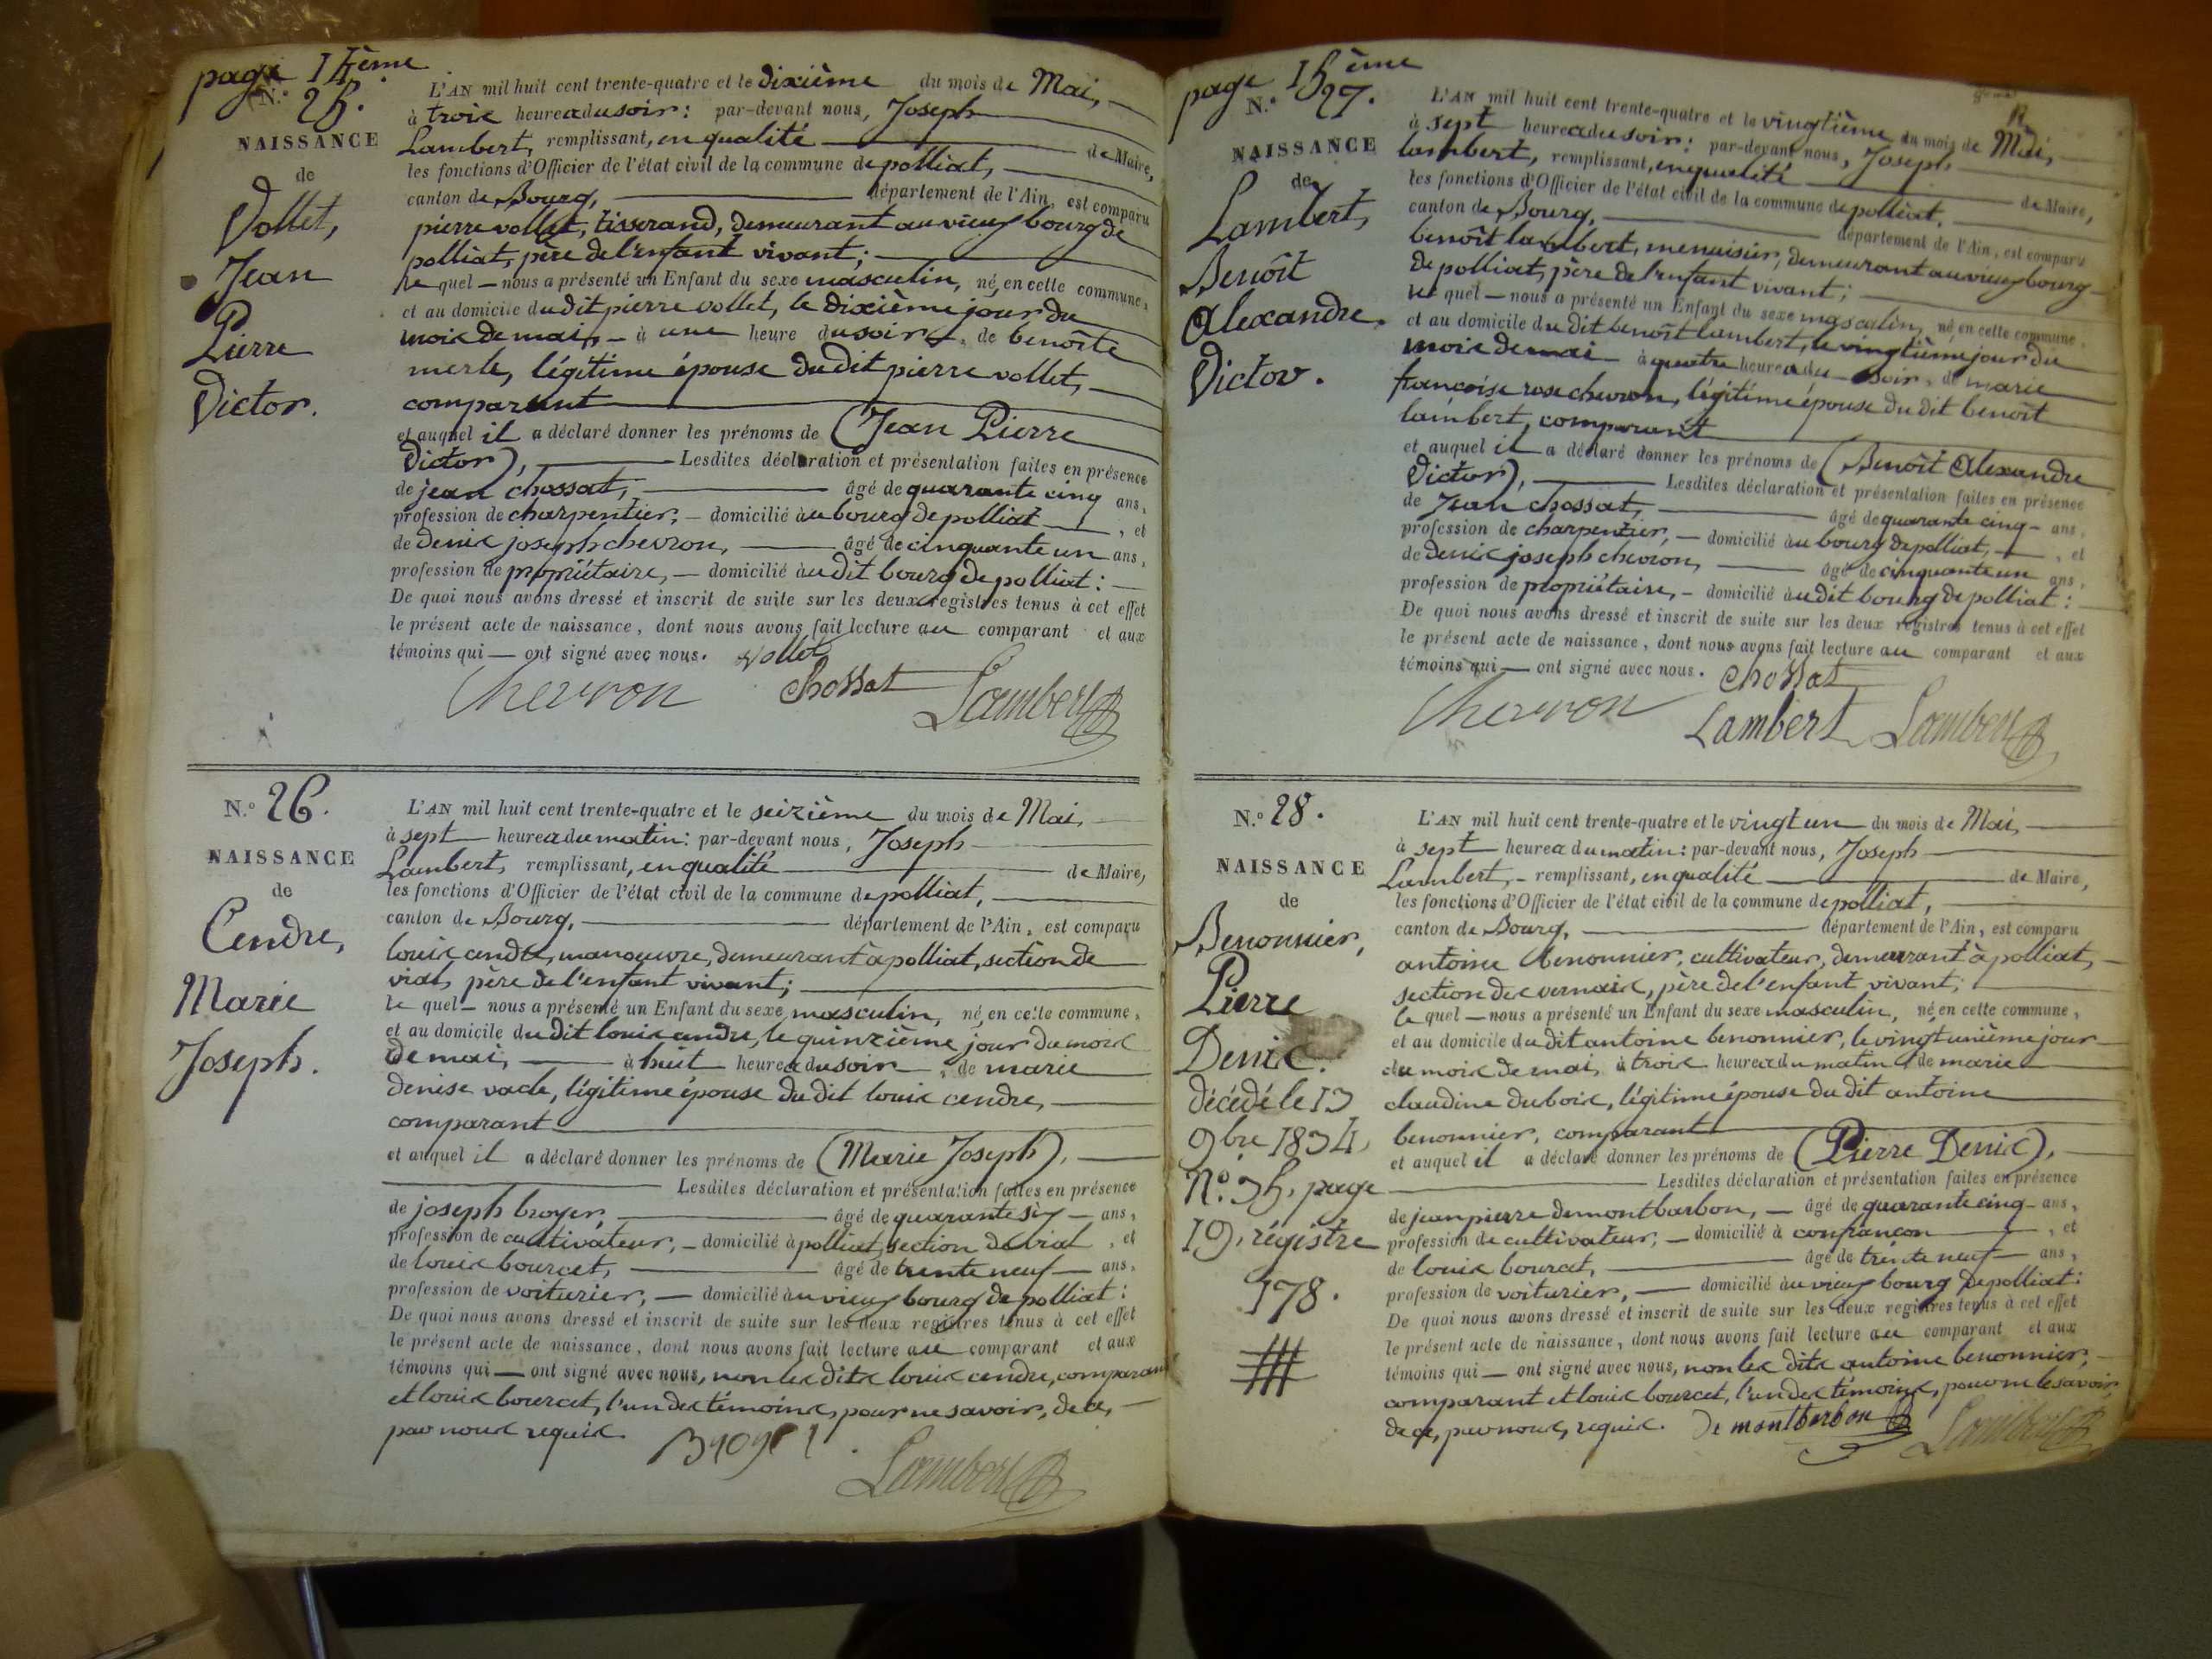 page 14ème
N.º 25.
NAISSANCE
de
Vollet,
Jean
Pierre
Victor.
L'AN mil huit cent trente-quatre et le dixième du mois de Mai,
à trois heures du soir : par-devant nous, Joseph
Lambert, remplissant, en qualité de Maire,
les fonctions d'Officier de l'état civil de la commune de polliat,
canton de Bourg, département de l'Ain, est comparu
pierre vollet, tisserand, demeurant au vieux bourg de
polliat, père de l'enfant vivant ;
le quel nous a présenté un Enfant du sexe masculin, né en cette commune,
et au domicile du dit pierre vollet, le dixième jour du
mois de mai, à une heure du soir, de benoîte
merle, légitime épouse du dit pierre vollet,
comparant
et auquel il a déclaré donner les prénoms de (Jean Pierre
Victor), Lesdites déclaration et présentation faites en présence
de jean chossat, âgé de quarante cinq ans,
profession de charpentier, domicilié au bourg de polliat, et
de denis joseph chevron, âgé de cinquante un ans,
profession de propriétaire, domicilié au dit bourg de polliat :
De quoi nous avons dressé et inscrit de suite sur les deux registres tenus à cet effet
le présent acte de naissance, dont nous avons fait lecture au comparant et aux
témoins qui ont signé avec nous. Vollet
Chevron Chossat Lambert
N.º 26.
NAISSANCE
de
Cendre,
Marie
Joseph.
L'AN mil huit cent trente-quatre et le seizième du mois de Mai,
à sept heures du matin : par-devant nous, Joseph
Lambert, remplissant, en qualité de Maire,
les fonctions d'Officier de l'état civil de la commune de polliat,
canton de Bourg, département de l'Ain, est comparu
louis cendre, manoeuvre, demeurant à polliat, section de
vial, père de l'enfant vivant ;
le quel nous a présenté un Enfant du sexe masculin, né en cette commune,
et au domicile du dit louis cendre, le quinzième jour du mois
de mai, à huit heures du soir, de marie
denise vacle, légitime épouse du dit louis cendre,
comparant
et auquel il a déclaré donner les prénoms de (Marie Joseph),
Lesdites déclaration et présentation faites en présence
de joseph broyer, âgé de quarante six ans,
profession de cultivateur, domicilié à polliat, section de vial, et
de louis bourcet, âgé de trente neuf ans,
profession de voiturier, domicilié au vieux bourg de polliat :
De quoi nous avons dressé et inscrit de suite sur les deux registres tenus à cet effet
le présent acte de naissance, dont nous avons fait lecture au comparant et aux
témoins qui ont signé avec nous, non les dits louis cendre, comparant
et louis bourcet, l'un des témoins, pour ne savoir, de ce,
par nous requis. Broyer
Lambert
page 15ème
N.º 27.
NAISSANCE
de
Lambert,
Benoît
Alexandre
Victor.
L'AN mil huit cent trente-quatre et le vingtième du mois de Mai,
à sept heures du soir : par-devant nous, Joseph
lambert, remplissant, en qualité de Maire,
les fonctions d'Officier de l'état civil de la commune de polliat,
canton de Bourg, département de l'Ain, est comparu
benoît lambert, menuisier, demeurant au vieux bourg
de polliat, père de l'enfant vivant ;
le quel nous a présenté un Enfant du sexe masculin, né en cette commune,
et au domicile du dit benoît lambert, le vingtième jour du
mois de mai à quatre heures du soir, de marie
françoise rose chevron, légitime épouse du dit benoît
lambert, comparant
et auquel il a déclaré donner les prénoms de (Benoît Alexandre
Victor), Lesdites déclaration et présentation faites en présence
de Jean chossat, âgé de quarante cinq ans,
profession de charpentier, domicilié au bourg de polliat, et
de denis joseph chevron, âgé de cinquante un ans,
profession de propriétaire, domicilié au dit bourg de polliat :
De quoi nous avons dressé et inscrit de suite sur les deux registres tenus à cet effet
le présent acte de naissance, dont nous avons fait lecture au comparant et aux
témoins qui ont signé avec nous. Chossat
Chevron Lambert Lambert
N.º 28.
NAISSANCE
de
Benonnier,
Pierre
Denis.
décédé le 13
9bre 1834,
Nº 35, page
19, régistre
178.
L'AN mil huit cent trente-quatre et le vingt un du mois de Mai,
à sept heures du matin : par-devant nous, Joseph
Lambert, remplissant, en qualité de Maire,
les fonctions d'Officier de l'état civil de la commune de polliat,
canton de Bourg, département de l'Ain, est comparu
antoine benonnier, cultivateur, demeurant à polliat,
section des vernais, père de l'enfant vivant ;
le quel nous a présenté un Enfant du sexe masculin, né en cette commune,
et au domicile du dit antoine benonnier, le vingt unième jour
du mois de mai, à trois heures du matin, de marie
claudine dubois, légitime épouse du dit antoine
benonnier, comparant
et auquel il a déclaré donner les prénoms de (Pierre Denis),
Lesdites déclaration et présentation faites en présence
de jean pierre demontbarbon, âgé de quarante cinq ans,
profession de cultivateur, domicilié à confrançon, et
de louis bourcet, âgé de trente neuf ans,
profession de voiturier, domicilié au vieux bourg de polliat :
De quoi nous avons dressé et inscrit de suite sur les deux registres tenus à cet effet
le présent acte de naissance, dont nous avons fait lecture au comparant et aux
témoins qui ont signé avec nous, non les dits antoine benonnier,
comparant et louis bourcet, l'un des témoins, pour ne le savoir,
de ce, par nous, requis. De montbarbon Lambert